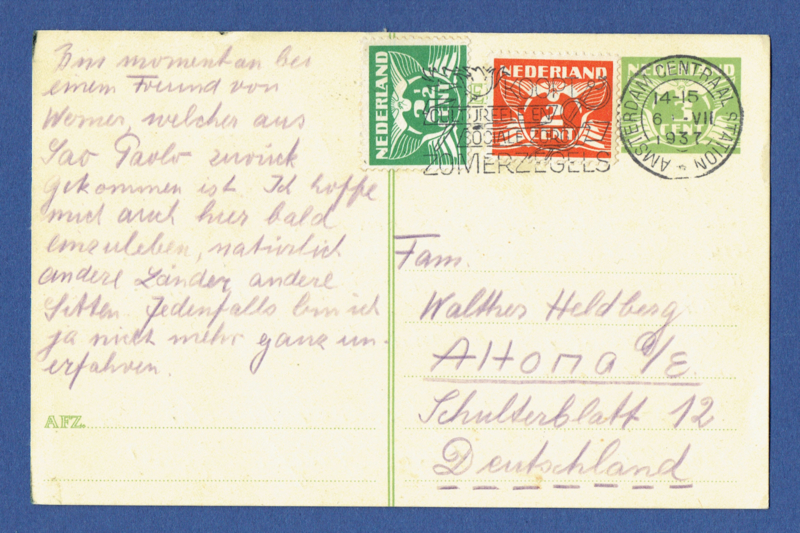 Bin momentan bei
einem Freund von
Werner, welcher aus
Sao Paolo zurück
gekommen ist. Ich hoffe
mich auch hier bald
einzuleben, natürlich
andere Länder, andere
Sitten. Jedenfalls bin ich
ja nicht mehr ganz un-
erfahren.
AFZ.
NEDERLAND
2½
CENT
NEDERLAND
CENT
NEDERLAND
CULTUREELE EN
SOCIALE
ZOMERZEGELS
AMSTERDAM CENTRAAL STATION
14-15
6 VII
1937
Fam.
Walther Heldberg
Altona a/E
Schulterblatt 12
Deutschland